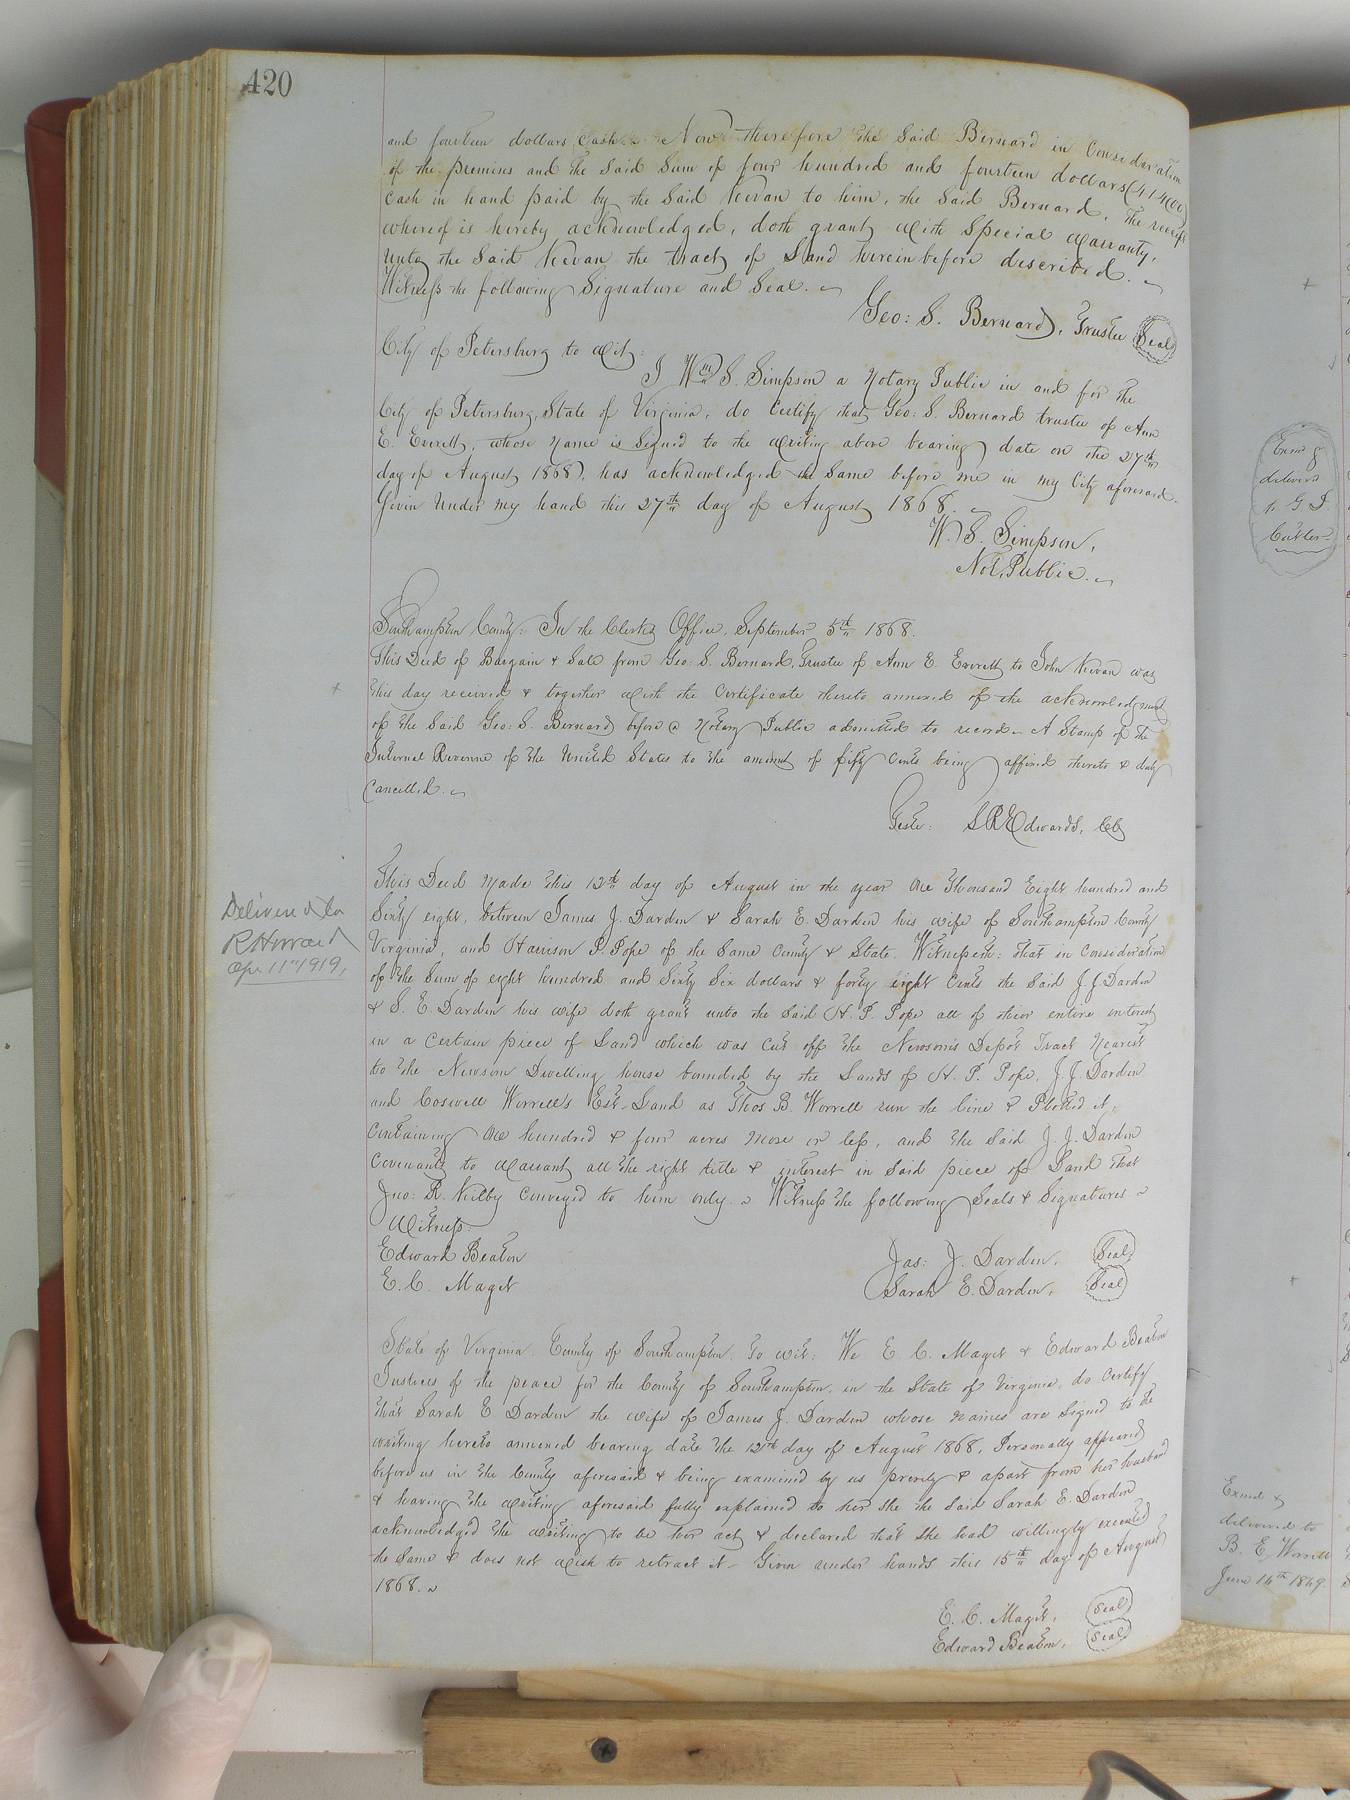 420
and fourteen dollars Cash. Now therefore the Said Bernard in Consideration
of the premises and the Said Sum of four hundred and fourteen dollars ($414.00)
Cash in hand paid by the Said Kevan to him, the Said Bernard, The receipt
whereof is hereby acknowledged, doth grant with Special Warranty,
unto the Said Kevan the tract of Land hereinbefore described.
Witness the following Signature and Seal.
Geo: S. Bernard, Trustee Seal
City of Petersburg to wit:
I Wm S. Simpson a Notary Public in and for the
City of Petersburg, State of Virginia, do Certify that Geo: S. Bernard trustee of Ann
E. Everett, whose name is Signed to the writing above bearing date on the 27th
day of August 1868, has acknowledged the Same before me in my City aforesaid.
Given under my hand this 27th day of August 1868.
W. S. Simpson,
Not. Public.
Southampton County: In the Clerks Office, September 5th 1868.
This Deed of Bargain & Sale from Geo: S. Bernard, Trustee of Ann E. Everett to John Kevan was
this day received & together with the Certificate thereto annexed of the acknowledgment
of the Said Geo: S. Bernard before a Notary Public admitted to record. A Stamp of the
Internal Revenue of the United States to the amount of fifty Cents being affixed thereto & duly
Cancelled.
Teste: L R Edwards, Clk
This Deed Made this 12th day of August in the year One Thousand Eight hundred and
Sixty eight, between James J. Darden & Sarah E. Darden his wife of Southampton County
Virginia, and Harrison P. Pope of the Same County & State. Witnesseth: that in Consideration
of the Sum of eight hundred and Sixty Six dollars & forty eight Cents the Said J. J. Darden
& S. E. Darden his wife doth grant unto the Said H. P. Pope all of their entire interest
in a Certain piece of Land which was Cut off the Newsom's Depot Tract Nearest
to the Newsom Dwelling house bounded by the Lands of H. P. Pope, J. J. Darden
and Coswell Worrell's Est. Land as Thos B. Worrell run the line & Plotted it,
Containing One hundred & four acres More or less, and the Said J. J. Darden
Covenants to Warrant all the right title & interest in Said piece of Land that
Jno: R. Kilby Conveyed to him only. Witness the following Seals & Signatures
Witness
Edward Beaton
E. C. Maget
Jas: J. Darden. Seal
Sarah E. Darden. Seal
State of Virginia. County of Southampton. To wit: We E. C. Maget & Edward Beaton
Justices of the peace for the County of Southampton, in the State of Virginia, do Certify
that Sarah E. Darden the wife of James J. Darden whose names are Signed to the
writing hereto annexed bearing date the 12th day of August 1868, Personally appeared
before us in the County aforesaid & being examined by us privily & apart from her husband
& having the writing aforesaid fully explained to her She the Said Sarah E. Darden
acknowledged the writing to be her act & declared that She had willingly executed
the Same & does not wish to retract it. Given under hands this 15th day of August
1868.
E. C. Maget, Seal
Edward Beaton, Seal
Delivered to
R Howard
Apr. 11th 1919,
Exmd &
delivered
to G J
Cutler
Exmd &
delivered to
B. E. Worrell
June 14th 1869.